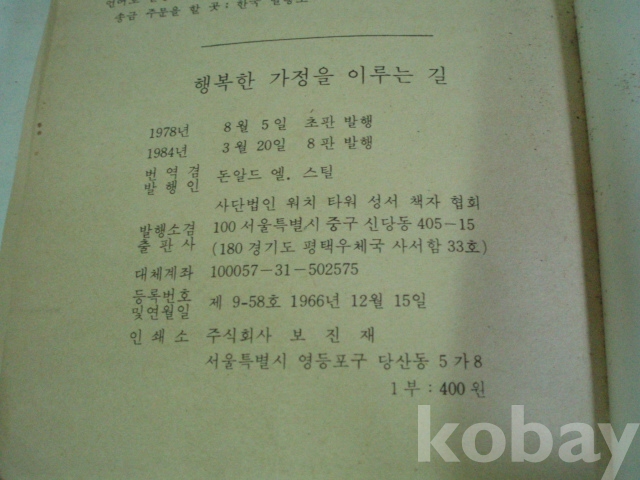 송금 주문을 할 곳: 한국
행복한 가정을 이루는 길
1978년 8월 5일 초판 발행
1984년 3월 20일 8판 발행
번역겸
발행인 돈알드 엘. 스틸
사단법인 워치 타워 성서 책자 협회
발행소겸 100 서울특별시 중구 신당동 405-15
출판사 (180 경기도 평택우체국 사서함 33호)
대체계좌 100057-31-502575
등록번호
및연월일 제 9-58호 1966년 12월 15일
인쇄소 주식회사 보진재
서울특별시 영등포구 당산동 5가 8
1부: 400원
kobay